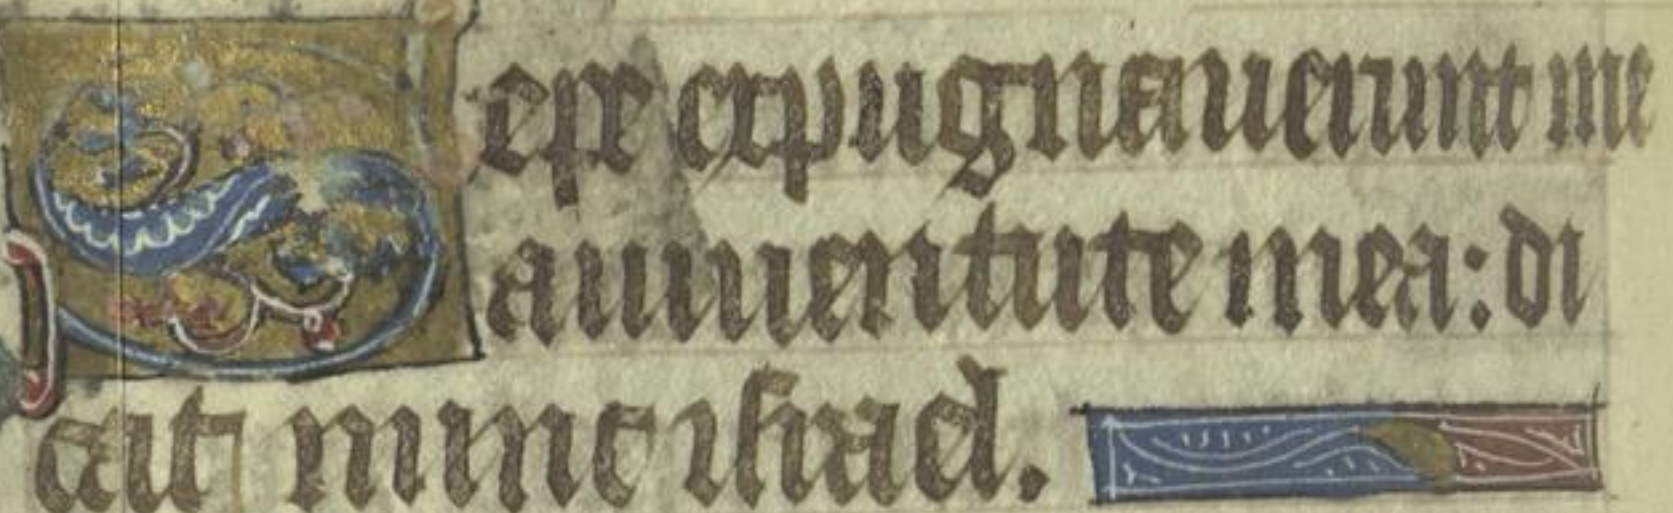 Sepe expugnauerunt me
a iuuentute mea: di
cat nunc iſrael.